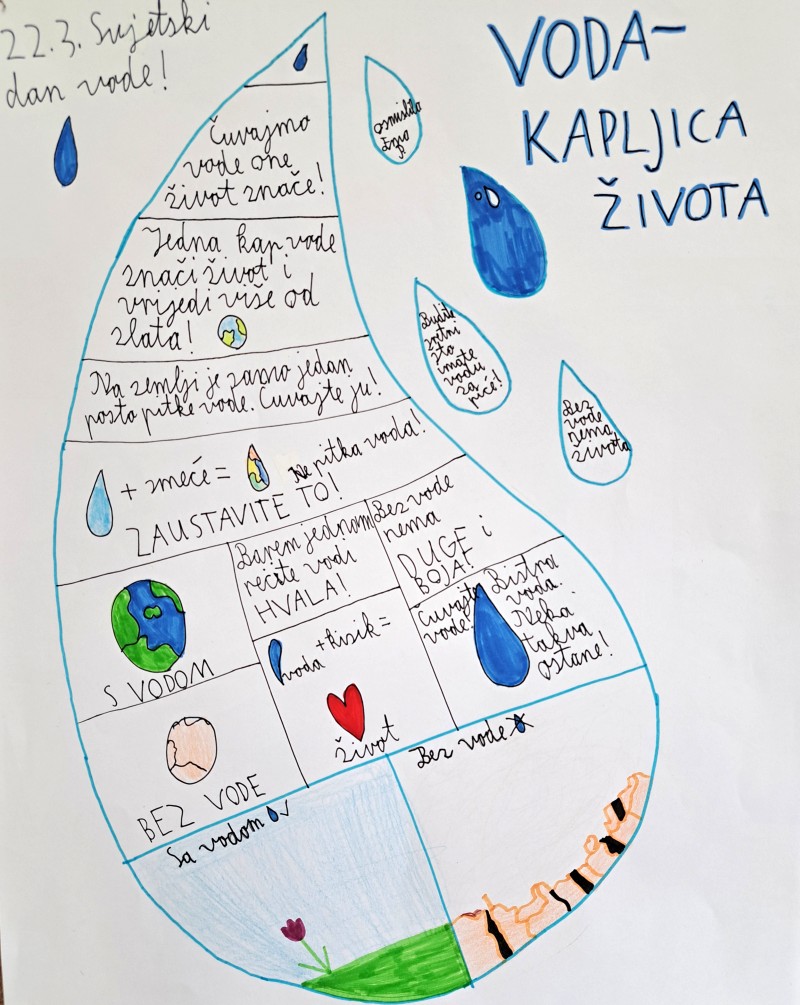 22.3. Svjetski
dan vode!
VODA-
KAPLJICA
ŽIVOTA
osmislila
Čuvajmo
vode one
život znače!
Jedna kap vode
znači život i
vrijedi više od
zlata!
Na zemlji je samo jedan
posto pitke vode. Čuvajte ju!
Budite
sretni
što
imate
vodu
za
piće!
Bez
vode
nema
života
+ smeće = Ne pitka voda!
ZAUSTAVITE TO!
S VODOM
Barem jednom
recite vodi
HVALA!
Bez vode
nema
DUGE i
BOJA!
BEZ VODE
voda + kisik =
život
Čuvajte
vode!
Bistra
voda.
Neka
takva
ostane!
Sa vodom
Bez vode